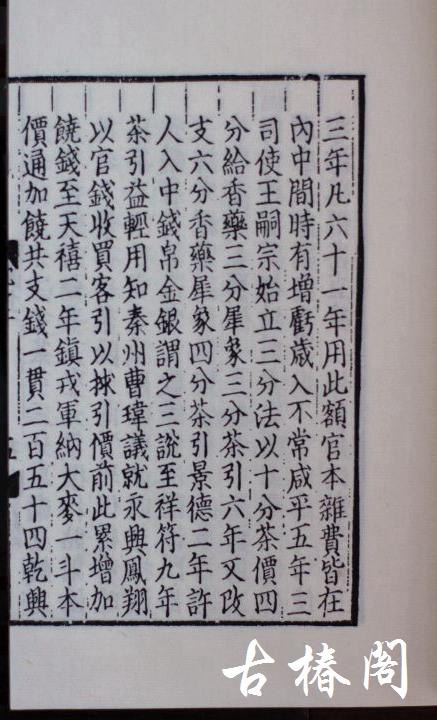 三年凡六十一年用此額官本雜費皆在
內中間時有增虧歲入不常咸平五年三
司使王嗣宗始立三分法以十分茶價四
分給香藥三分犀象三分茶引六年又改
支六分香藥犀象四分茶引景德二年許
人入中錢帛金銀謂之三說至祥符九年
茶引益輕用知秦州曹瑋議就永興鳳翔
以官錢收買客引以捄引價前此累增加
饒錢至天禧二年鎮戎軍納大麥一斗本
價通加饒共支錢一貫二百五十四乾興
古椿閣